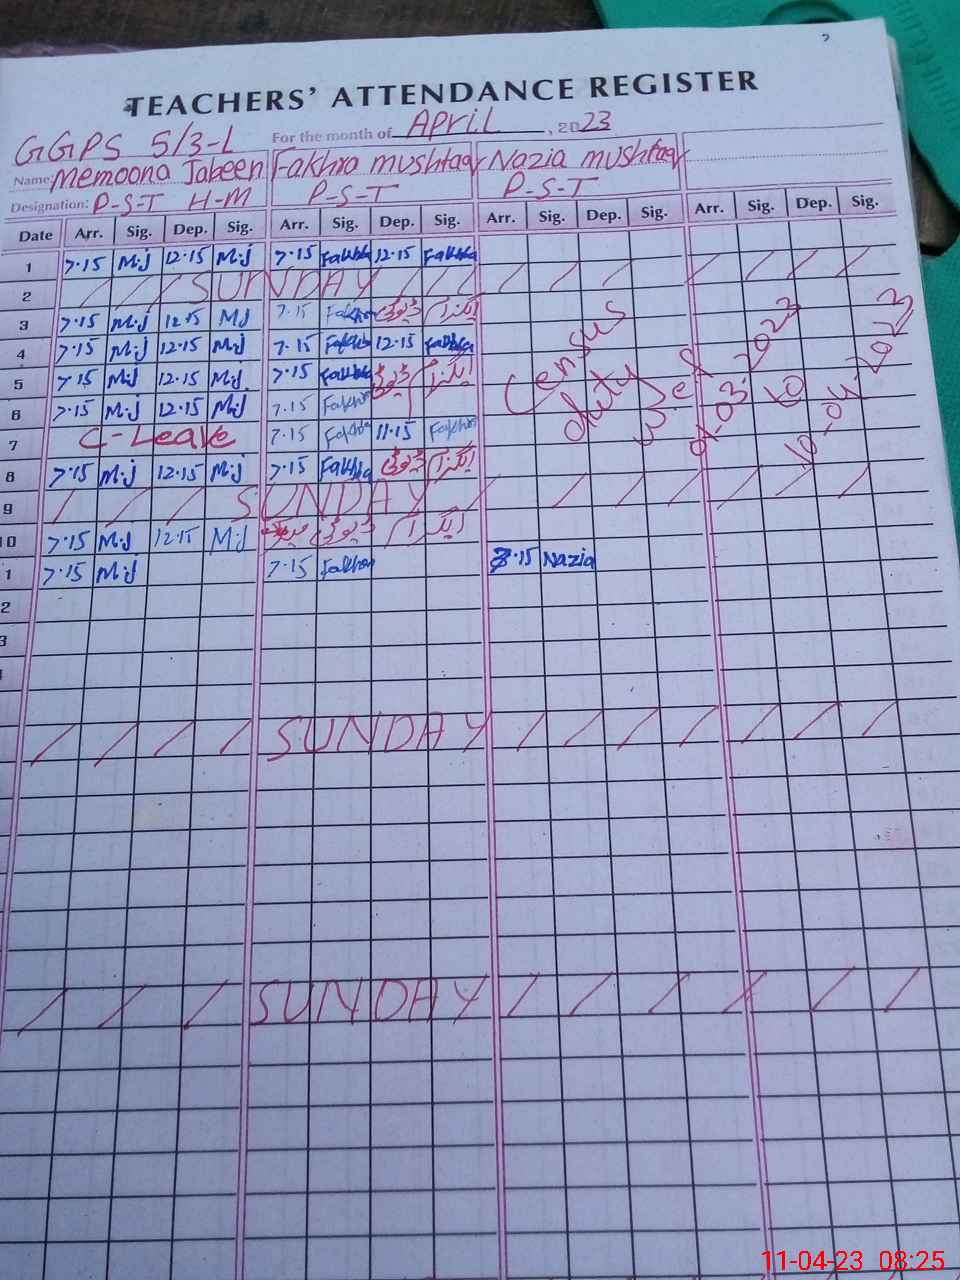 TEACHERS' ATTENDANCE REGISTER
GGPS 5/3-L For the month of April, 2023
Name: Memoona Jabeen Fakhra mushtaq Nazia mushtaq
Designation: P-S-T H-M P-S-T P-S-T
Date Arr. Sig. Dep. Sig. Arr. Sig. Dep. Sig. Arr. Sig. Dep. Sig. Arr. Sig. Dep. Sig.
1 7.15 M.j 12.15 M.j 7.15 Fakhra 12.15 Fakhra
2 SUNDAY
3 7.15 M.j 12.15 M.j 7.15 Fakhra ڈیوٹی
4 7.15 M.j 12.15 M.j 7.15 Fakhra 12.15 Fakhra
5 7.15 M.j 12.15 M.j 7.15 Fakhra ڈیوٹی
6 7.15 M.j 12.15 M.j 7.15 Fakhra
7 C-Leave 7.15 Fakhra 11.15 Fakhra
8 7.15 M.j 12.15 M.j 7.15 Fakhra ڈیوٹی
Census duty w.e.f 01-03-2023 to 10-04-2023
9 SUNDAY
10 7.15 M.j 12.15 M.j ڈیوٹی
1 7.15 M.j 7.15 Fakhra 7.15 Nazia
2
3
SUNDAY
SUNDAY
11-04-23 08:25